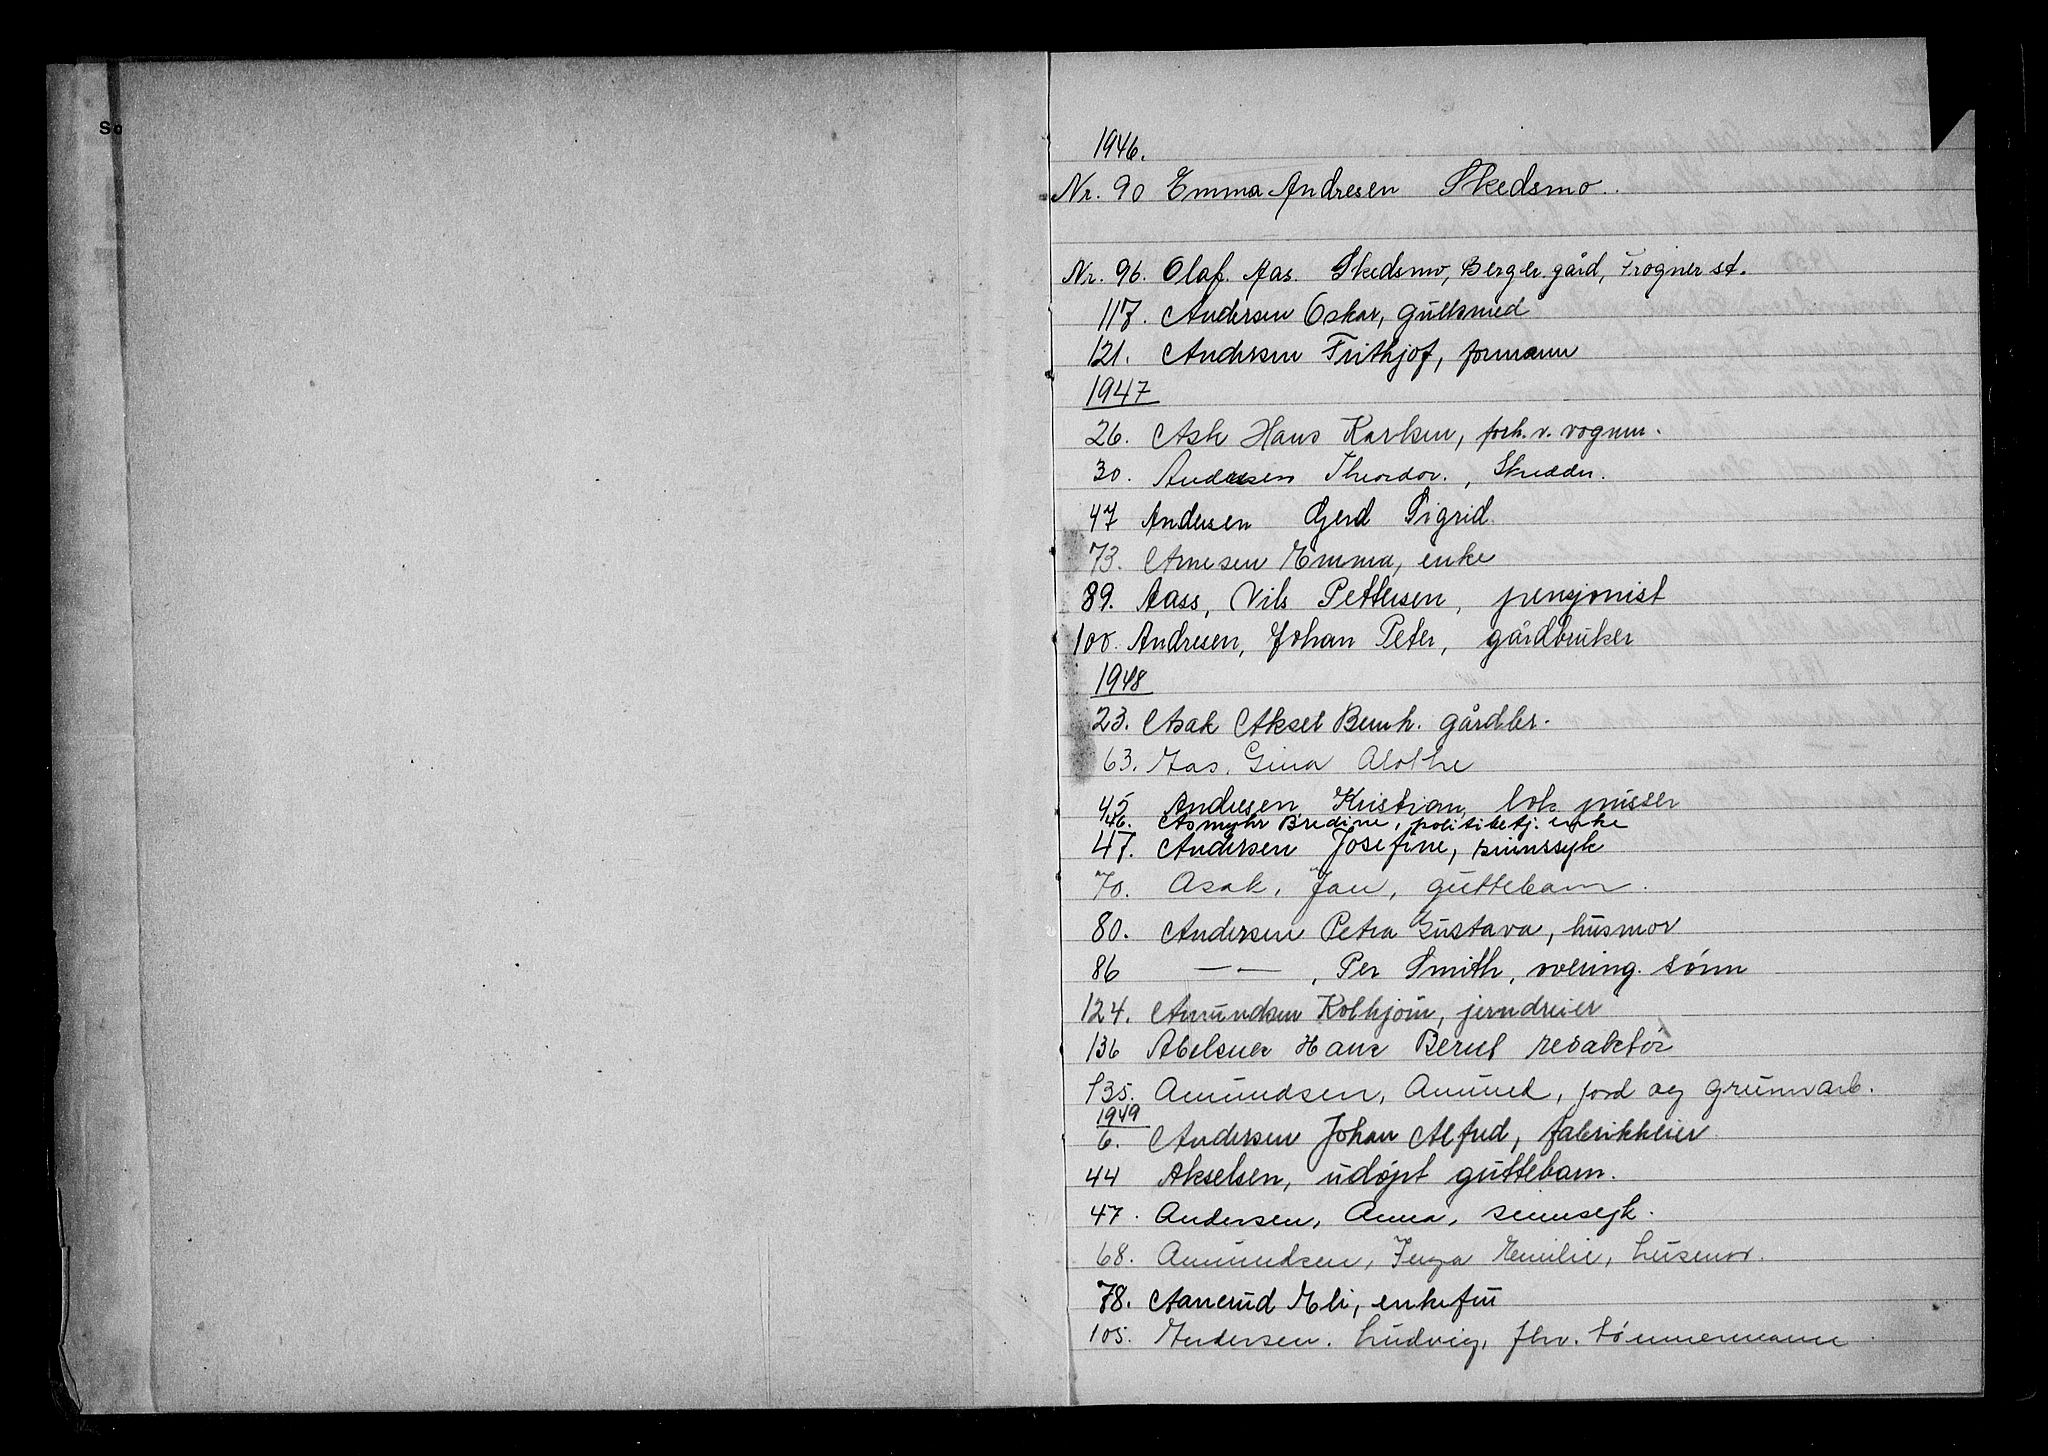 So
1946.
Nr. 90 Emma Andresen Skedsmo.
Nr. 96. Olaf Aas. Skedsmo, Berger gård, Frogner st.
117. Andersen Oskar, gullsmed
121. Andersen Frithjof, formann
1947
26. Ask Hans Karlsen, forh. v. vognm.
30. Andresen Theodor., Skredder.
47 Andersen Gerd Sigrid.
73. Arnesen Emma, enke
89. Aass, Nils Pettersen, pensjonist
100. Andresen, Johan Peter, gårdbruker
1948
23. Asak Aksel Bernh. gårdbr.
63. Aas, Gina Alothe
45 Andresen Kristian, lok. pusser
46. Asmyhr Bredine, politibetj. enke
47. Andersen Josefine, sinnssyk
70. Asak, Jan, guttebarn.
80. Andersen Petra Gustava, husmor
86 — — , Per Smith, overing. sønn
124. Amundsen Kolbjørn, jerndreier
136 Abelsnes Hans Bernt redaktør
135. Amundsen, Amund, jord og grunnarb.
1949
6. Andersen Johan Alfred, fabrikkeier
44 Akselsen, udøpt guttebarn.
47. Andersen, Anna, sinnsyk.
68. Amundsen, Inga Emilie, husmor.
78. Aanerud Eli, enkefru
105. Andersen. Ludvig, fhv. tømmermann